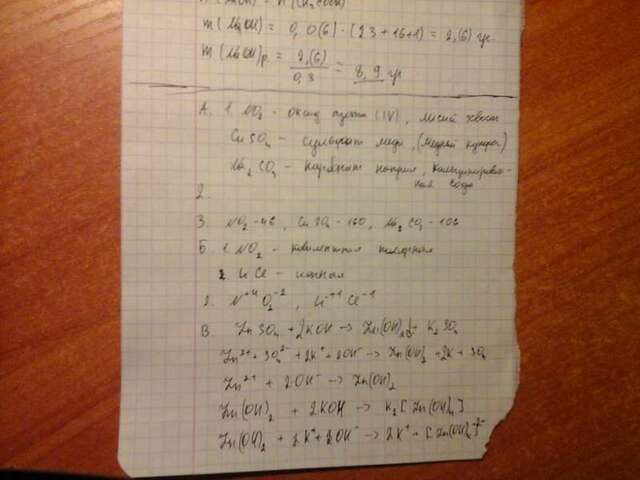 m (NaOH) = 0,0(6) · (23 + 16 + 1) = 2,(6) гр.
m (NaOH)р. = 2,(6) / 0,3 = 8,9 гр
А. 1. NO₂ – оксид азота (IV), лисий хвост
CuSO₄ – сульфат меди, (медный купорос)
Na₂CO₃ – карбонат натрия, кальцинирован-
ная сода
2.
3. NO₂ – 46, CuSO₄ – 160, Na₂CO₃ – 106
Б. 1. NO₂ – ковалентная полярная
2. LiCl – ионная
2. N⁺⁴O₂⁻², Li⁺¹Cl⁻¹
В. ZnSO₄ + 2KOH → Zn(OH)₂↓ + K₂SO₄
Zn²⁺ + SO₄²⁻ + 2K⁺ + 2OH⁻ → Zn(OH)₂ + 2K + SO₄
Zn²⁺ + 2OH⁻ → Zn(OH)₂
Zn(OH)₂ + 2KOH → K₂[Zn(OH)₄]
Zn(OH)₂ + 2K⁺ + 2OH⁻ → 2K⁺ + [Zn(OH)₄]²⁻